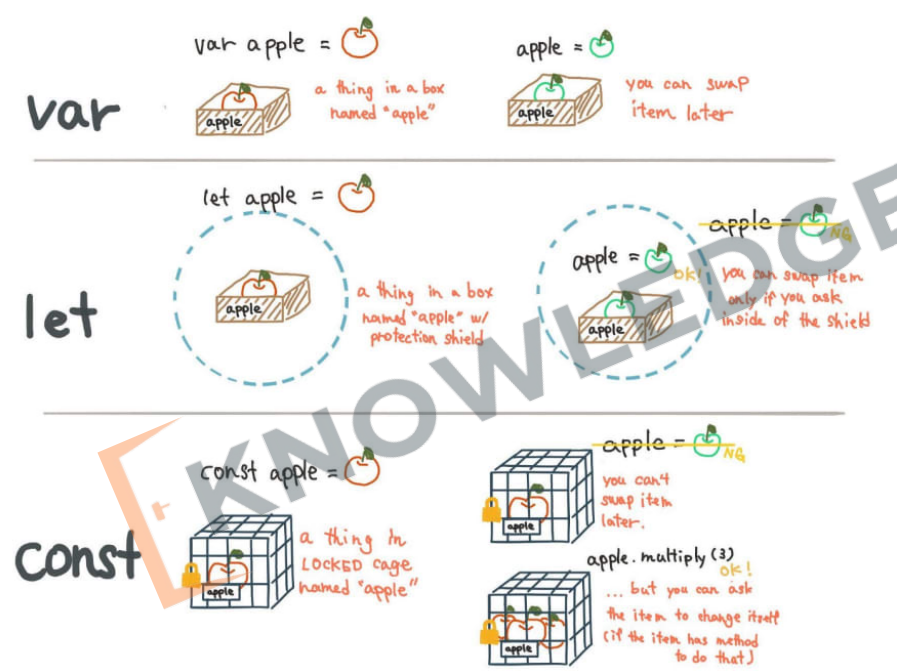 var
var apple =
apple
a thing in a box
named "apple"
apple =
apple
you can swap
item later
let
let apple =
apple
a thing in a box
named "apple" w/
protection shield
apple =
ok!
apple
apple =
NG
you can swap item
only if you ask
inside of the shield
KNOWLEDGE
const
const apple =
apple
a thing in
LOCKED cage
named "apple"
apple =
NG
apple
you can't
swap item
later.
apple.multiply(3)
ok!
apple
... but you can ask
the item to change itself
(if the item has method
to do that)